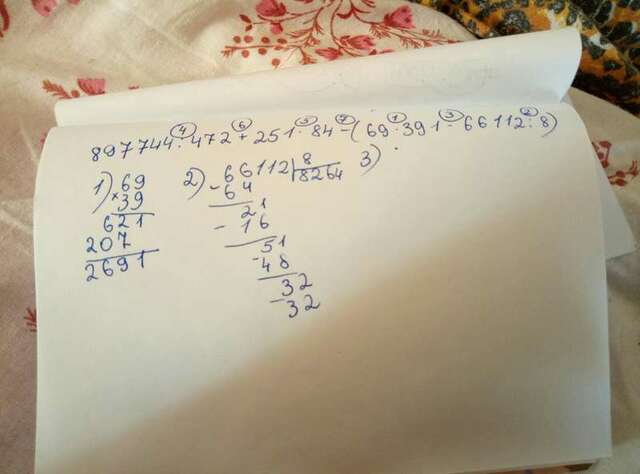 4 6 5 7 1 3 2
897744:472+251·84-(69·391-66112:8)
1) 69
×39
621
207
2691
2) 66112 8
-64 8264
21
-16
51
-48
32
-32
3)